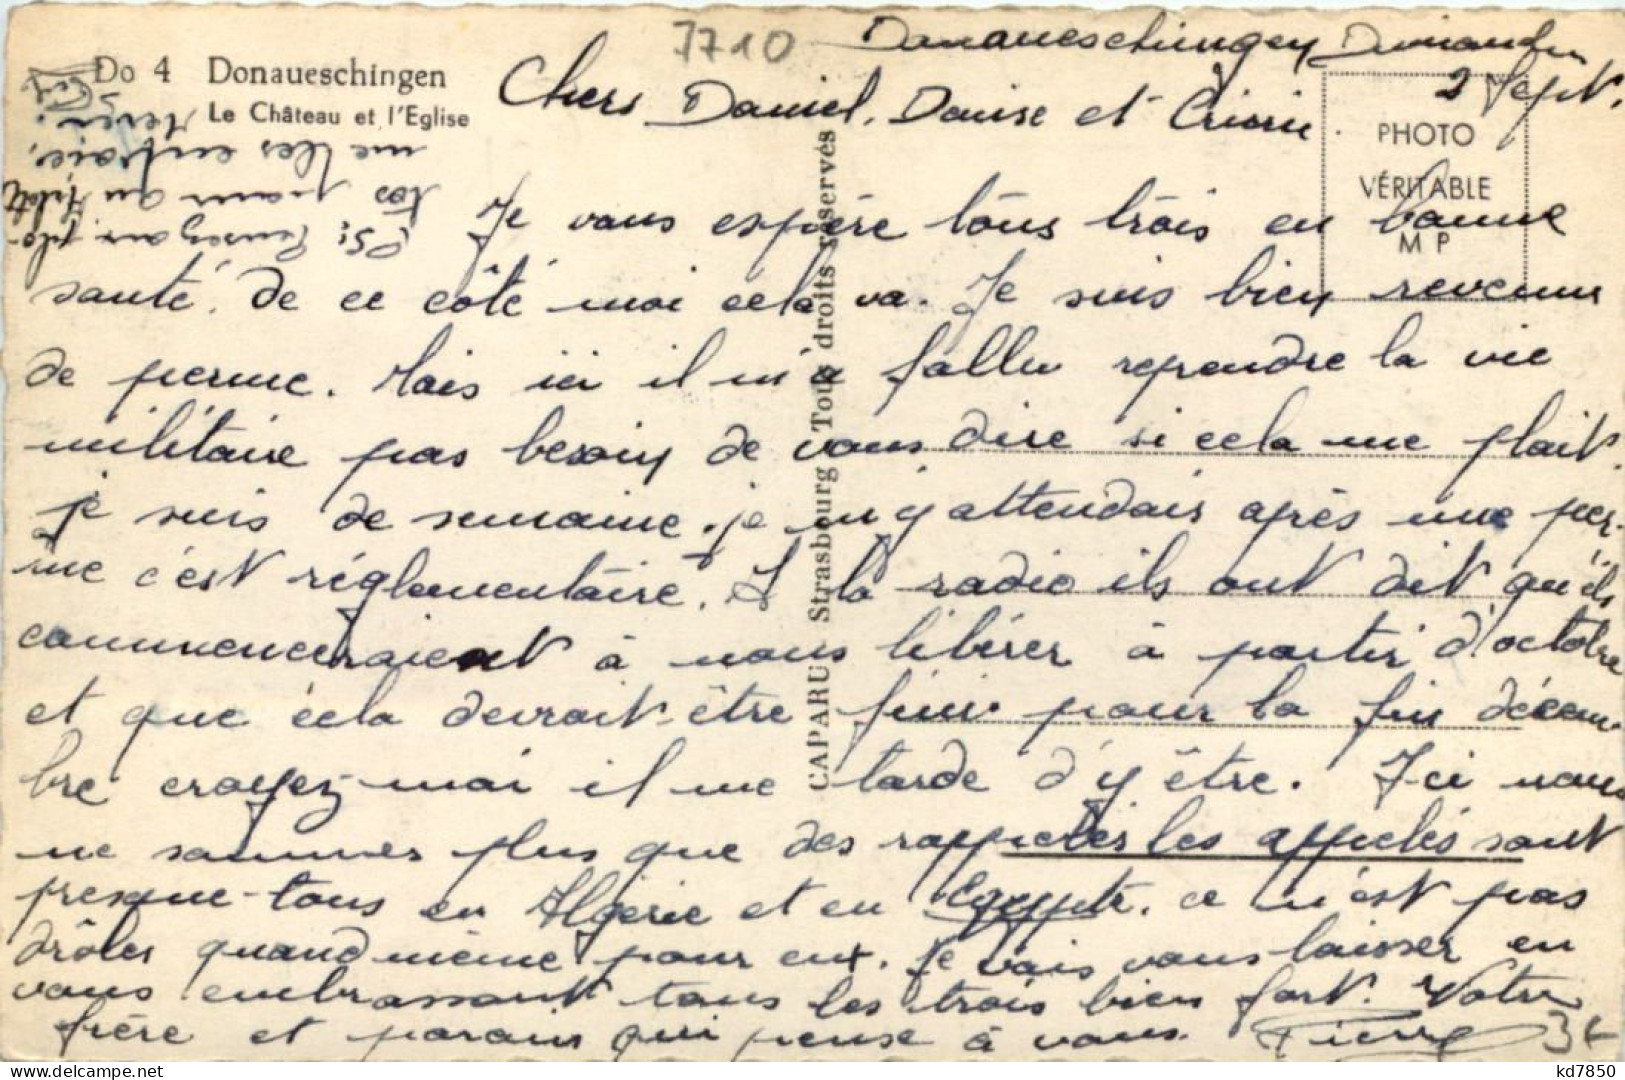 7710
Donaueschingen Dimanche
2 Sept.
Do 4 Donaueschingen
Le Château et l'Eglise
PHOTO
VÉRITABLE
M P
CAPARU Strasbourg Tous droits réservés
Chers Daniel, Denise et
Je vous espère tous trois en bonne
santé. De ce côté moi cela va. Je suis bien revenu
de perme. Mais ici il m'a fallu reprendre la vie
militaire pas besoin de vous dire si cela me plait.
je suis de semaine. je m'y attendais après une per-
me c'est réglementaire. A la radio ils ont dit qu'ils
commenceraient à nous libérer à partir d'octobre
et que cela devrait être fini pour la fin décem-
bre croyez-moi il me tarde d'y être. Ici nous
ne sommes plus que des rappelés les appelés sont
presque tous en Algérie et en Egypte. ce n'est pas
drôles quand même pour eux. Je vais vous laisser en
vous embrassant tous les trois bien fort. Votre
frère et parain qui pense à vous. Pierre
PS:
kd7850